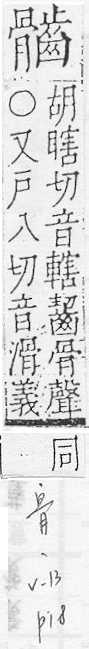 胡瞎切音轄齧骨聲
○又戸八切音滑義
同
骨
v-13
p18